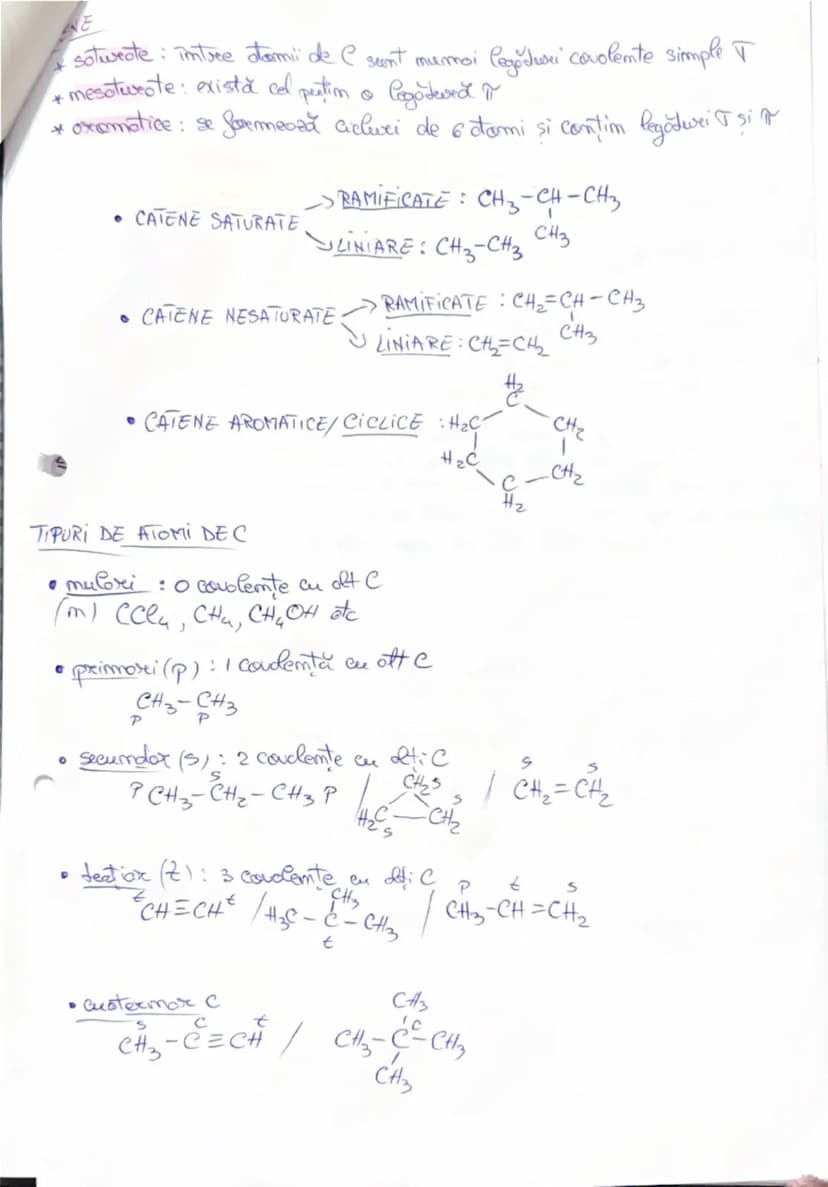 * saturate : între atomii de C sunt numai legături covalente simple σ
* nesaturate : există cel puțin o legătură π
* aromatice : se formează cicluri de 6 atomi și conțin legături σ și π
• CATENE SATURATE
→ RAMIFICATE : CH3-CH-CH3
CH3
↘ LINIARE : CH3-CH3
• CATENE NESATURATE
→ RAMIFICATE : CH2=CH-CH3
CH3
↘ LINIARE : CH2=CH2
H2
C
• CATENE AROMATICE/CICLICE : H2C CH2
H2C CH2
C
H2
TIPURI DE ATOMI DE C
• nulari : 0 covalențe cu alt C
(n) CCl4, CH4, CH4OH etc
• primari (p) : 1 covalență cu alt C
CH3-CH3
P P
• secundar (s) : 2 covalențe cu alți C
P CH3-CH2-CH3 P / CH2 s / CH2=CH2
s s s
H2C-CH2
s s
• terțiar (t) : 3 covalențe cu alți C
CH3 P t s
t CH≡CH t / H3C-C-CH3 / CH3-CH=CH2
t
• cuaternar C
s c t
CH3-C≡CH / CH3-C-CH3
CH3 c
CH3